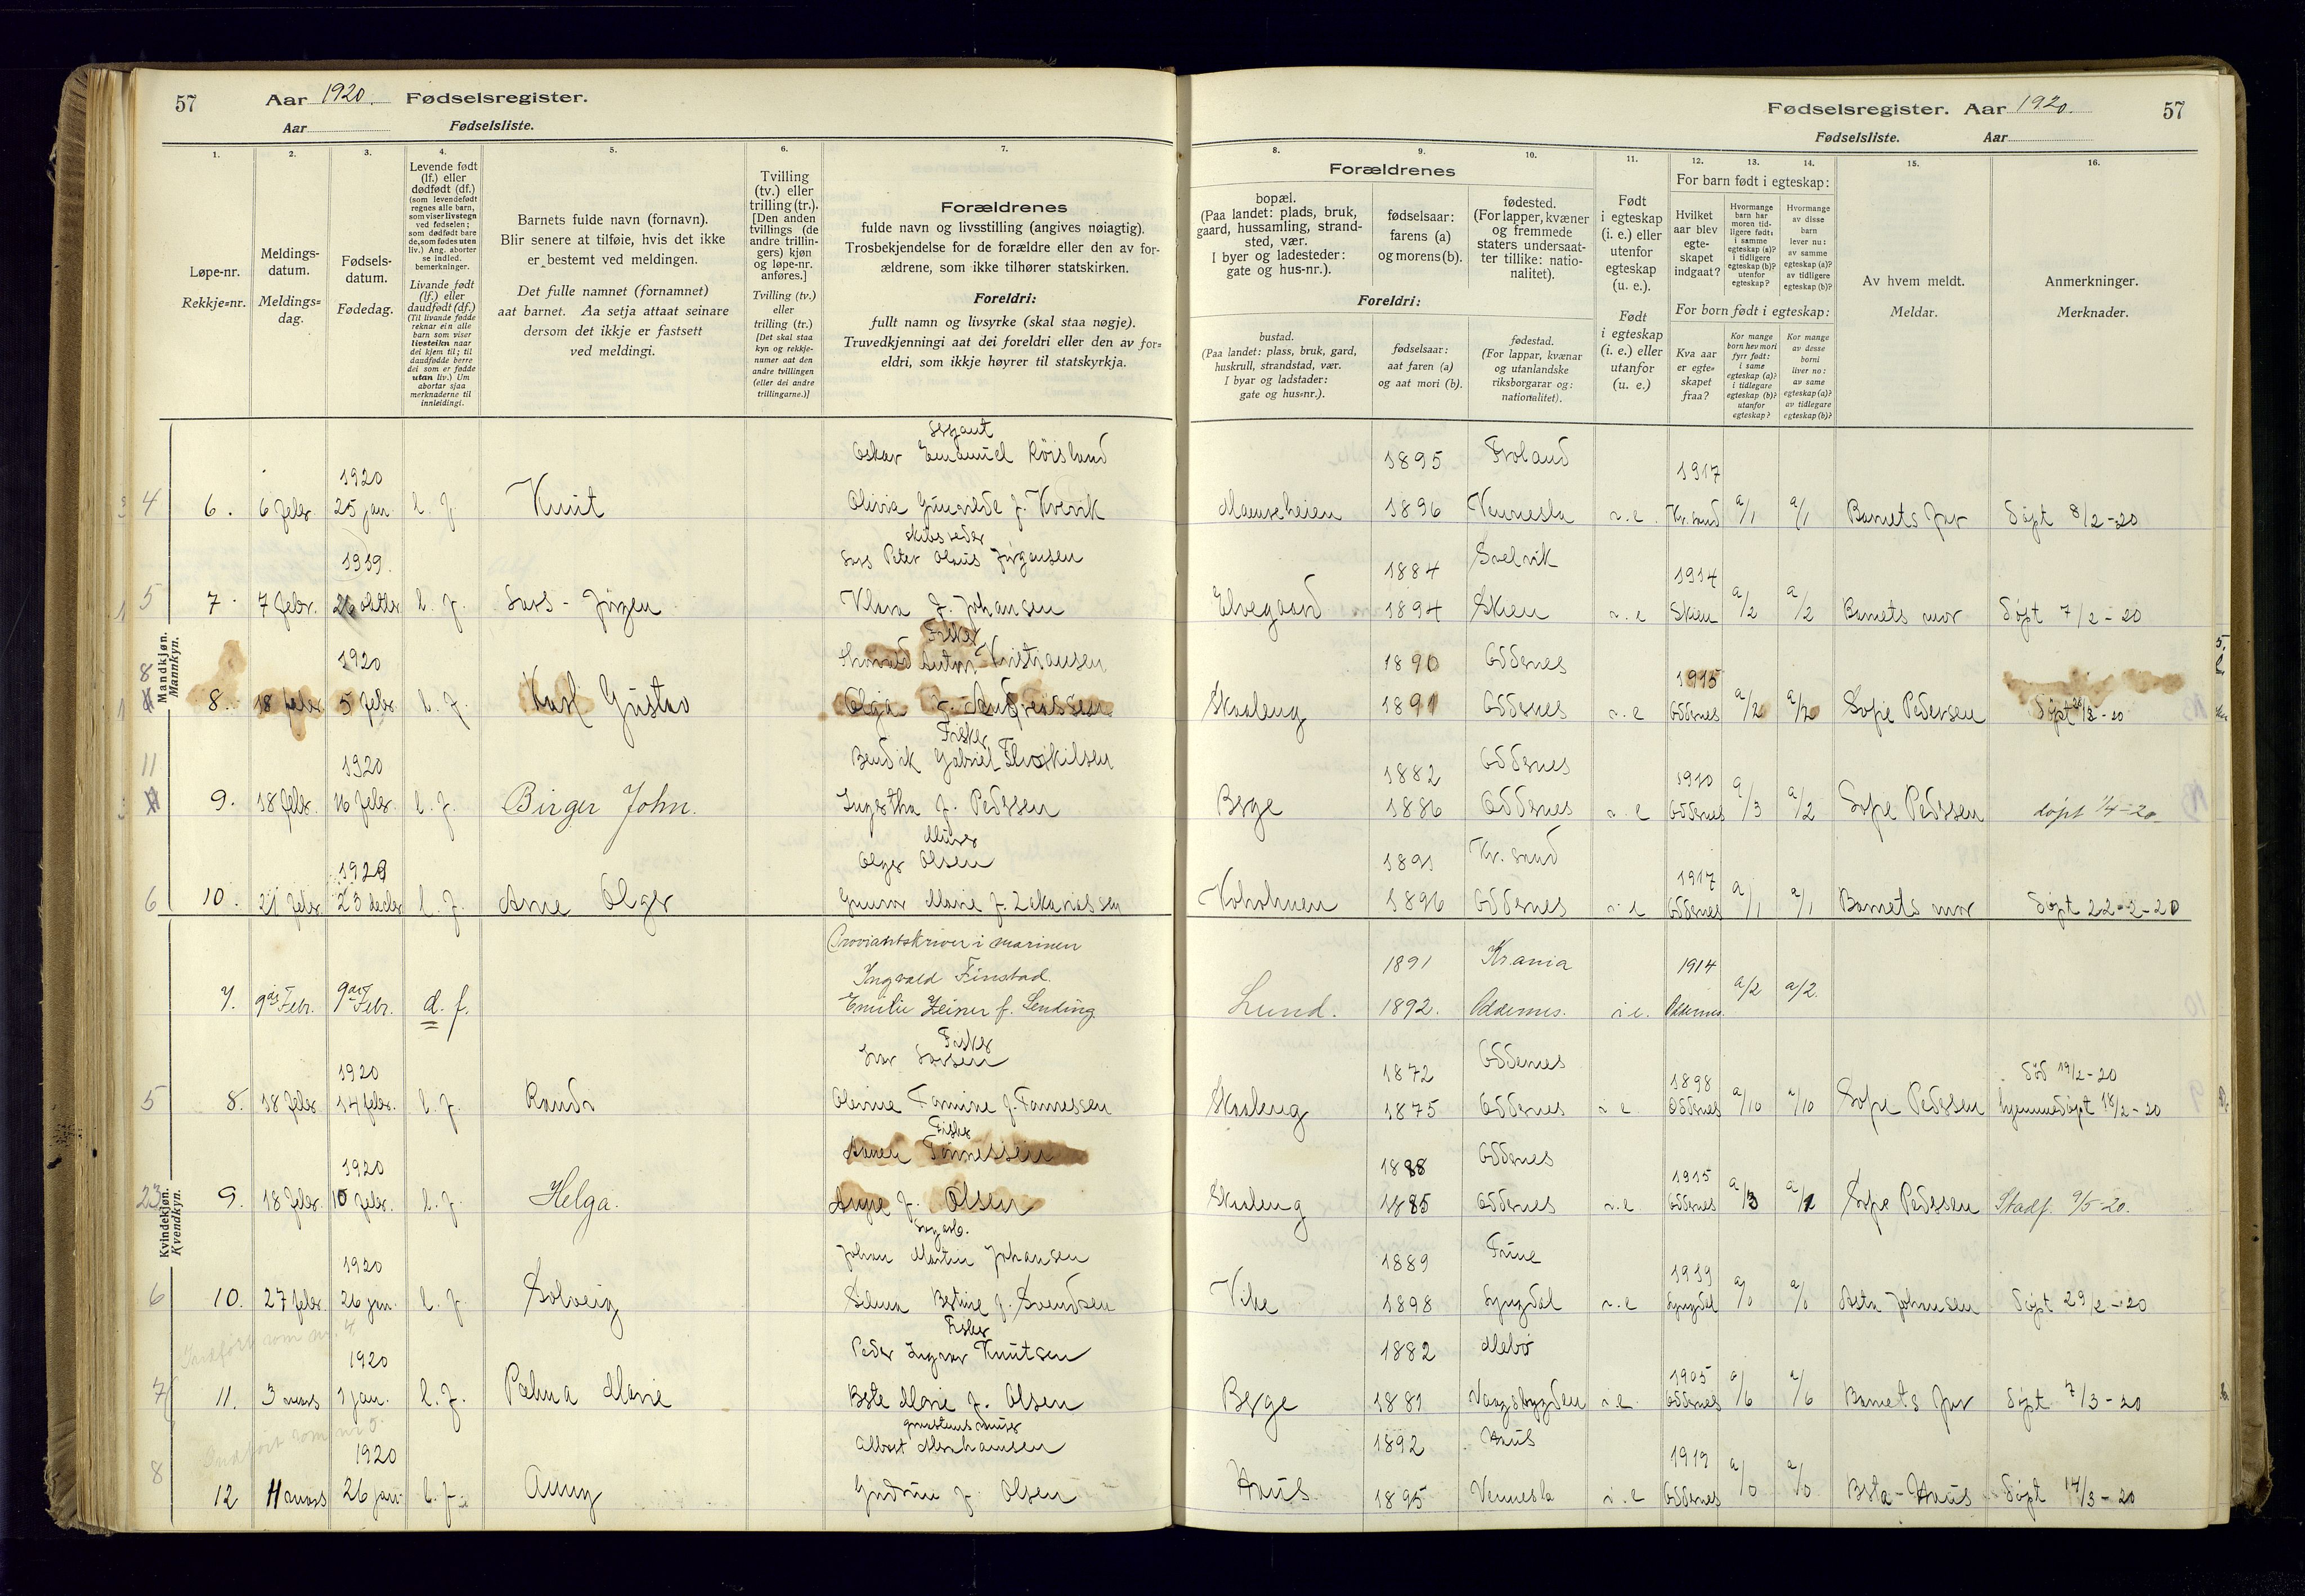 57 Aar 1920. Fødselsregister.
Aar Fødselsliste.
1. 2. 3. 4. 5. 6. 7.
Løpe-nr.
Rekkje=nr.
Meldings-
datum.
Meldings=
dag.
Fødsels-
datum.
Fødedag.
Levende født
(lf.) eller
dødfødt (df.)
(som levendefødt
regnes alle barn,
som viser livstegn
ved fødselen;
som dødfødt bare
de, som fødes uten
liv.) Ang. aborter
se indled.
bemerkninger.
Livande født
(lf.) eller
daudfødt (df.)
(Til livande fødde
reknar ein alle
barn som viser
livsteikn naar
dei kjem til; til
daudfødde berre
dei som er fødde
utan liv.) Um
abortar sjaa
merknaderne til
innleidingi.
Barnets fulde navn (fornavn).
Blir senere at tilføie, hvis det ikke
er bestemt ved meldingen.
Det fulle namnet (fornamnet)
aat barnet. Aa setja attaat seinare
dersom det ikkje er fastsett
ved meldingi.
Tvilling
(tv.) eller
trilling (tr.).
[Den anden
tvillings (de
andre trillin-
gers) kjøn
og løpe-nr.
anføres.]
Tvilling (tv.)
eller
trilling (tr.)
[Det skal staa
kyn og rekkje-
numer aat den
andre tvillingen
(eller dei andre
trillingarne.)]
Forældrenes
fulde navn og livsstilling (angives nøiagtig).
Trosbekjendelse for de forældre eller den av for-
ældrene, som ikke tilhører statskirken.
Foreldri:
fullt namn og livsyrke (skal staa nøgje).
Truvedkjenningi aat dei foreldri eller den av for=
eldri, som ikkje høyrer til statskyrkja.
Mandkjøn.
Mannkyn.
Sersjant
Oskar Emanuel Røisland
1920
4 6. 6 febr. 25 jan. l. f. Knut Olivia Gunvilde f. Kvevik
skibsreder
1919. Lars Peter Olaus Jørgensen
5 7. 7 febr. 26 oktbr l. f. Lars - Jørgen Klara f. Johansen
Fisker
8 1920 Anton Kristiansen
8. 18 febr 5 febr. l. f. Karl Gustav Olga f. Andreassen
Fisker
11 1920 Bendik Gabriel Thorkilsen
9. 18 febr. 16 febr. l. f. Birger John. Ingertha f. Pedersen
Murer
Olger Olsen
6 10. 21 febr. 23 decbr l. f. Arne Olger Gunvor Marie f. Zakariassen
Kvindekjøn.
Kvendkyn.
Proviantskriver i marinen
Ingvald Finstad.
7. 9de Febr. 9de Febr. d. f. Emilie Zeiner f. Lending.
Fisker
1920 Ivar Larsen
5 8. 18 febr. 14 febr. l. f. Randi Olevine Tomine f. Tønnessen
Fisker
1920 Tønnessen
23 9. 18 febr. 10 febr. l. f. Helga. f. Olsen
1920 Johan Martin Johansen
6 10. 27 febr. 26 jan. l. f. Solveig Selma Bertine f. Svendsen
Indført som nr. 4
Fisker
1920 Peder Ingvar Knutsen
7 11. 3 mars 1 jan. l. f. Palma Marie Berte Marie f. Olsen
Indført som nr 5
1920 Albert Abrahamsen
8 12 11 mars 26 jan. l. f. Anny Gudrun f. Olsen
Fødselsregister. Aar 1920. 57
Fødselsliste. Aar
8. 9. 10. 11. 12. 13. 14. 15. 16.
Forældrenes
bopæl.
(Paa landet: plads, bruk,
gaard, hussamling, strand-
sted, vær.
I byer og ladesteder:
gate og hus-nr.).
fødselsaar:
farens (a)
og morens (b).
fødested.
(For lapper, kvæner
og fremmede
staters undersaat-
ter tillike: natio-
nalitet).
Foreldri:
bustad.
(Paa landet: plass, bruk, gard,
huskrull, strandstad, vær.
I byar og ladstader:
gate og hus=nr.).
fødselsaar:
aat faren (a)
og aat mori (b).
fødestad.
(For lappar, kvænar
og utanlandske
riksborgarar og:
nationalitet).
Født
i egteskap
(i. e.) eller
utenfor
egteskap
(u. e.).
Født
i egteskap
(i. e.) eller
utanfor
(u. e.)
For barn født i egteskap:
Hvilket
aar blev
egte-
skapet
indgaat?
Hvormange
barn har
moren tid-
ligere født:
i samme
egteskap (a)?
i tidligere
egteskap (b)?
utenfor
egteskap?
Hvormange
av disse
barn
lever nu:
av samme
egteskap (a)?
av tidligere
egteskap (b)?
For born født i egteskap:
Kva aar
er egte=
skapet
fraa?
Kor mange
born hev mori
fyrr født:
i same
egteskap (a)?
i tidlegare
egteskap (b)?
utanfor
egteskap?
Kor mange
av desse
borni
liver no:
av same
egteskap (a)?
av tidlegare
egteskap (b)?
Av hvem meldt.
Meldar.
Anmerkninger.
Merknader.
1895 Froland 1917
1896 Vennesla i. e. Kr.sand a/1 a/1 Barnets far Døpt 8/2-20
1884 Svelvik 1914
Elvegaard 1894 Skien i. e Skien a/2 a/2 Barnets mor Døpt 7/2-20
1890 Oddernes 1915
Skaaleng 1891 Oddernes i. e Oddernes a/2 a/2 Sofie Pedersen Døpt
1882 Oddernes 1910
Berge 1886 Oddernes i. e Oddernes a/3 a/2 Sofie Pedersen døpt 1/4-20
1891 Kr. sand 1917
Koholmen 1896 Oddernes i. e Oddernes a/1 a/1 Barnets mor Døpt 22-2-20
1891 Kr.ania 1914
Lund. 1892. Oddernes. i e. Oddernes. a/2 a/2.
1872 Oddernes 1898 død 19/2-20
Skaaleng 1875 Oddernes i e. Oddernes a/10 a/10 Sofie Pedersen hjemmedøpt 18/2-20
1888 Oddernes 1915
Skaaleng 1885 Oddernes i. e. Oddernes a/3 Sofie Pedersen Stadf. 9/5-20.
1889 1919
Vike 1898 Lyngdal i. e Lyngdal a/0 a/0 Asta Johansen Døpt 29/2-20
1882 1905
Berge 1881 Vaagsbygden i e. Oddernes a/6 a/6 Barnets far Døpt 7/3-20
1892 1919
1895 Vennesla i. e Oddernes a/0 a/0 Døpt 14/3-20